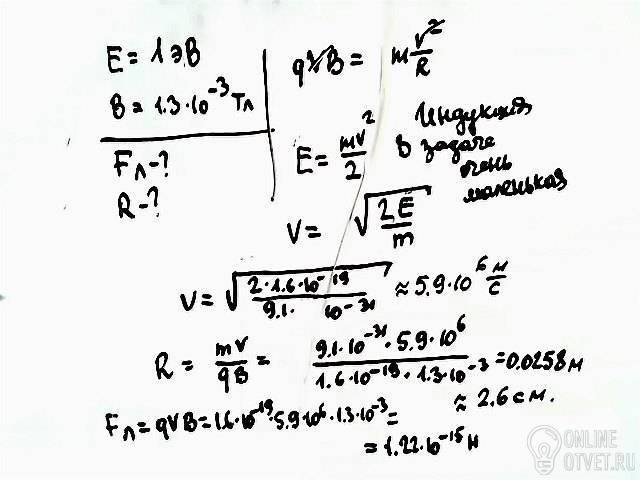 E = 1 эВ
B = 1.3·10⁻³ Тл
Fл - ?
R - ?
qvB = m v²/R
E = mv²/2
Индукция
в задаче
очень
маленькая
V = √(2E/m)
V = √(2·1.6·10⁻¹⁹/9.1· 10⁻³¹) ≈ 5.9·10⁶ м/с
R = mV/qB = 9.1·10⁻³¹·5.9·10⁶/1.6·10⁻¹⁹·1.3·10⁻³ = 0.0258 м
≈ 2.6 см.
Fл = qVB = 1.6·10⁻¹⁹·5.9·10⁶·1.3·10⁻³ =
= 1.22·10⁻¹⁵ Н
ONLINE
OTVET.RU